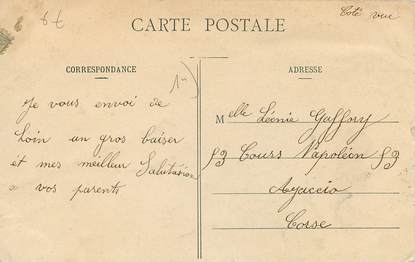 8 €
Coté vue
CARTE POSTALE
CORRESPONDANCE
1-)
Je vous envoi de
loin un gros baiser
et mes meilleur Salutation
a vos parents
ADRESSE
Melle Léonie Gaffory
53 Cours Napoléon 53
Ajaccio
Corse